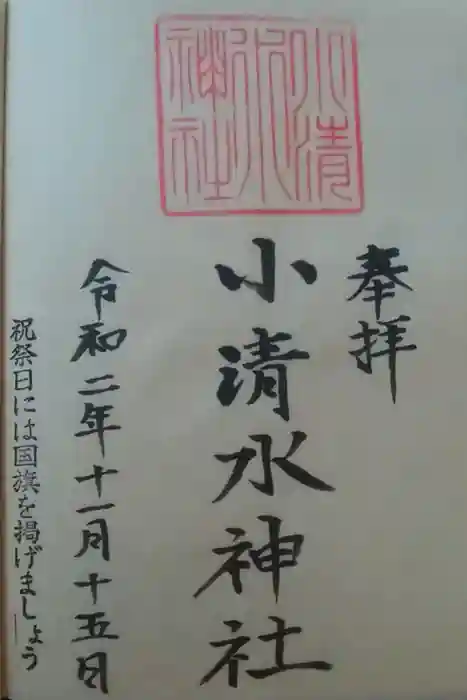 奉拝
小清水神社
小清水神社
令和二年十一月十五日
祝祭日には国旗を掲げましょう